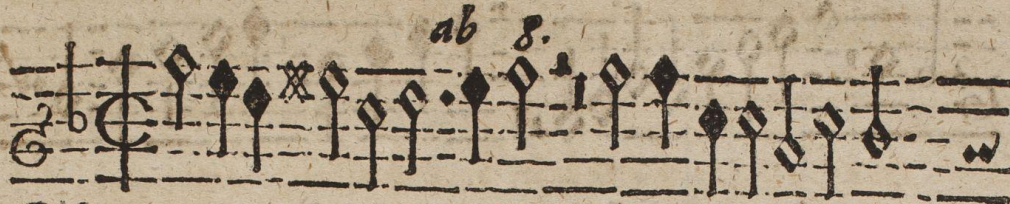 ab 8.